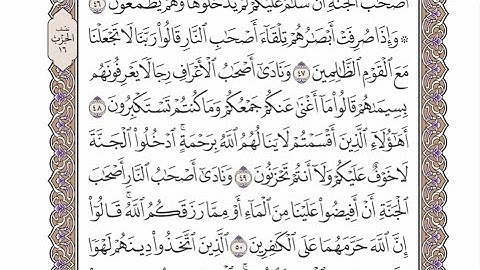 أَصْحَٰبَ ٱلْجَنَّةِ أَن سَلَٰمٌ عَلَيْكُمْ لَمْ يَدْخُلُوهَا وَهُمْ يَطْمَعُونَ ٤٦
۞ وَإِذَا صُرِفَتْ أَبْصَٰرُهُمْ تِلْقَآءَ أَصْحَٰبِ ٱلنَّارِ قَالُوا۟ رَبَّنَا لَا تَجْعَلْنَا
مَعَ ٱلْقَوْمِ ٱلظَّٰلِمِينَ ٤٧ وَنَادَىٰٓ أَصْحَٰبُ ٱلْأَعْرَافِ رِجَالًا يَعْرِفُونَهُم
بِسِيمَىٰهُمْ قَالُوا۟ مَآ أَغْنَىٰ عَنكُمْ جَمْعُكُمْ وَمَا كُنتُمْ تَسْتَكْبِرُونَ ٤٨
أَهَٰٓؤُلَآءِ ٱلَّذِينَ أَقْسَمْتُمْ لَا يَنَالُهُمُ ٱللَّهُ بِرَحْمَةٍ ۚ ٱدْخُلُوا۟ ٱلْجَنَّةَ
لَا خَوْفٌ عَلَيْكُمْ وَلَآ أَنتُمْ تَحْزَنُونَ ٤٩ وَنَادَىٰٓ أَصْحَٰبُ ٱلنَّارِ أَصْحَٰبَ
ٱلْجَنَّةِ أَنْ أَفِيضُوا۟ عَلَيْنَا مِنَ ٱلْمَآءِ أَوْ مِمَّا رَزَقَكُمُ ٱللَّهُ ۚ قَالُوٓا۟
إِنَّ ٱللَّهَ حَرَّمَهُمَا عَلَى ٱلْكَٰفِرِينَ ٥٠ ٱلَّذِينَ ٱتَّخَذُوا۟ دِينَهُمْ لَهْوًا
نصف
الحزب
١٦